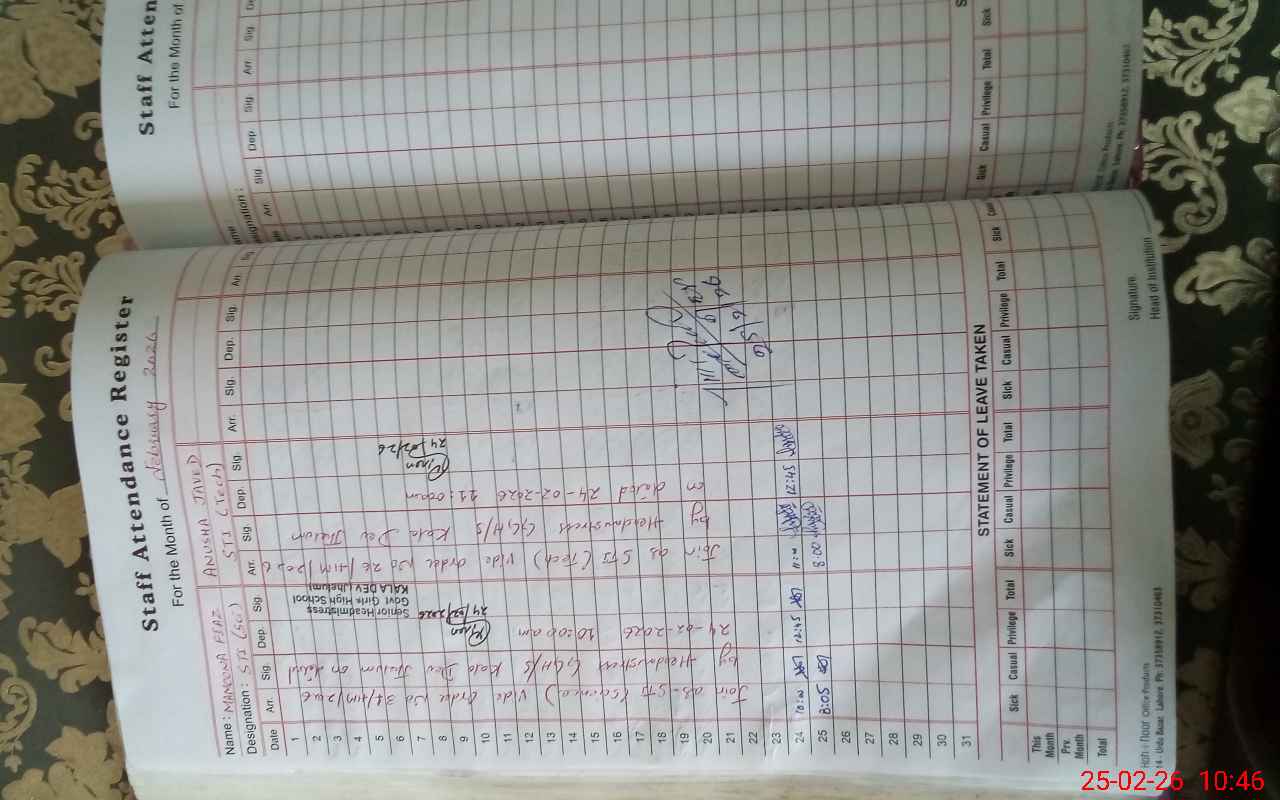 Staff Attendance Register
For the Month of February 2026
Name : MAMOONA FIAZ
ANUSHA JAVED
Designation : STI (Sc)
STI (Tech)
Date Arr. Sig. Dep. Sig. Arr. Sig. Dep. Sig. Arr. Sig. Dep. Sig. Arr.
1
2
3
4
5
6
7
8
9
10
11
12
13
14
15
16
17
18
19
20
21
22
23
24 10:00 12:45 11:00 12:45
25 8:05 8:00
26
27
28
29
30
31
Join as STI (Science) vide order No
by Headmistress GGH/S Kala Dev Jhelum on dated
24-02-2026 10:00 am
24/02/2026
Senior Headmistress
Govt Girls High School
KALA DEV (Jhelum)
Join as STI (Tech) vide order No 26/HM/2026
by Headmistress GGH/S Kala Dev Jhelum
on dated 24-02-2026 11:00am
24/02/26
STATEMENT OF LEAVE TAKEN
Sick Casual Privilege Total Sick Casual Privilege Total Sick Casual Privilege Total Sick
This Month
Prv. Month
Total
Signature
Head of Institution
Office Products
14 - Urdu Bazar, Lahore. Ph: 37358912, 37310463
Staff Atten
For the Month of
Arr. Sig. Dep. Sig. Arr. Sig.
Sick Casual Privilege Total Sick
Office Products
Lahore. Ph: 37358912, 37310463
25-02-26 10:46